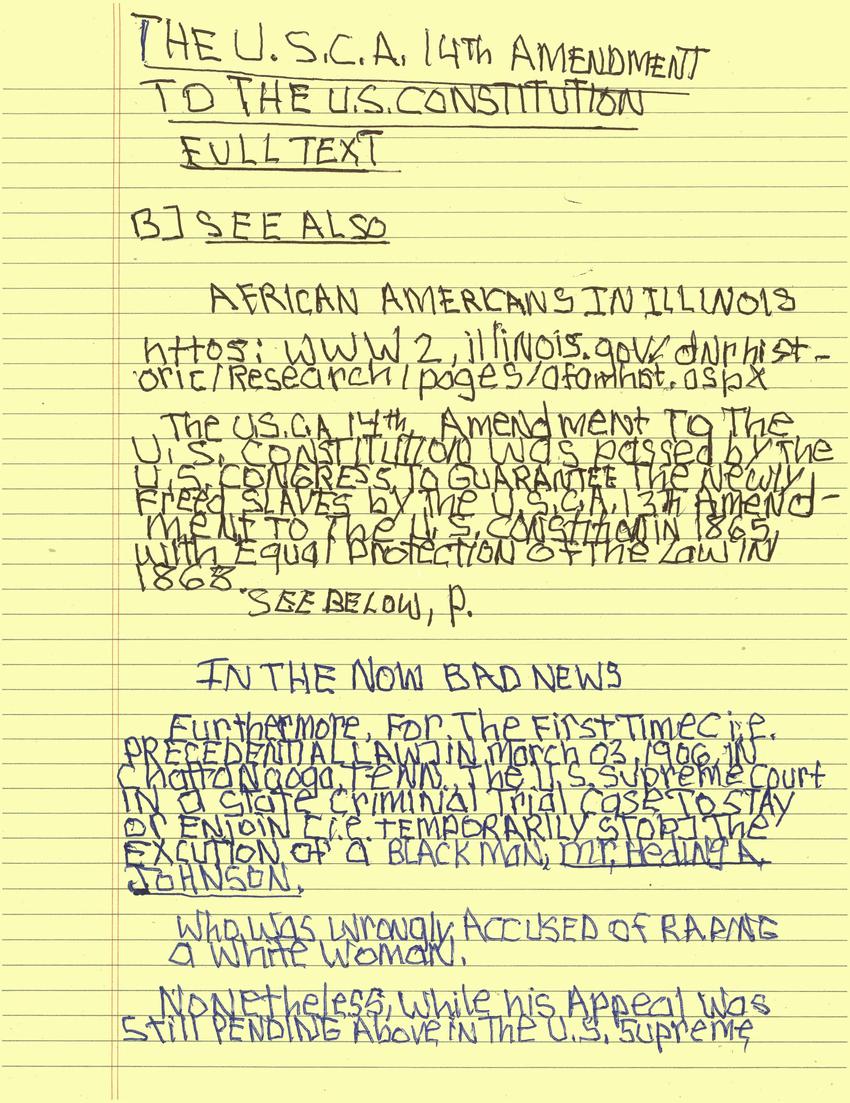 THE U.S.C.A. 14th AMENDMENT
TO THE U.S. CONSTITUTION
FULL TEXT
B] SEE ALSO
AFRICAN AMERICANS IN ILLINOIS
https: WWW2, illiNois.gov/dNrhist-
oric/Research/pages/afamhst.aspx
The U.S.C.A 14th, Amendment To The
U.S. CONSTITUTION was passed by The
U.S. CONGRESS, TO GUARANTEE The Newly
Freed SLAVES by The U.S.C.A. 13th Amend-
MENT TO The U.S. Constition IN 1865,
with Equal Protection Of The Law IN
1868.
SEE BELOW, P.
IN THE NOW BAD NEWS
Furthermore, For The First Time [i.e.
PRECEDENTIAL LAW] IN March 03, 1906, IN
ChattaNooga, TENN. The U.S. Supreme Court
IN a State Criminial Trial Case To STAY
or ENJOIN [i.e. TEMPORARILY STOP] The
EXCUTION of a BLACK MAN, Mr. Heding A.
JOHNSON,
Who Was wrongly ACCUSED Of RAPING
a White WomaN.
NoNetheless, while his Appeal Was
Still PENDING Above in The U.S. Supreme